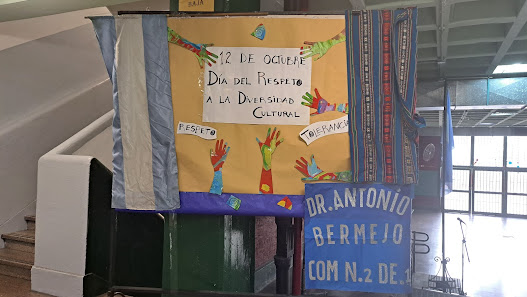 BAJA
12 DE OCTUBRE
DÍA DEL RESPETO
A LA DIVERSIDAD
CULTURAL
RESPETO
TOLERANCIA
DR. ANTONIO
BERMEJO
COM N.2 DE.1